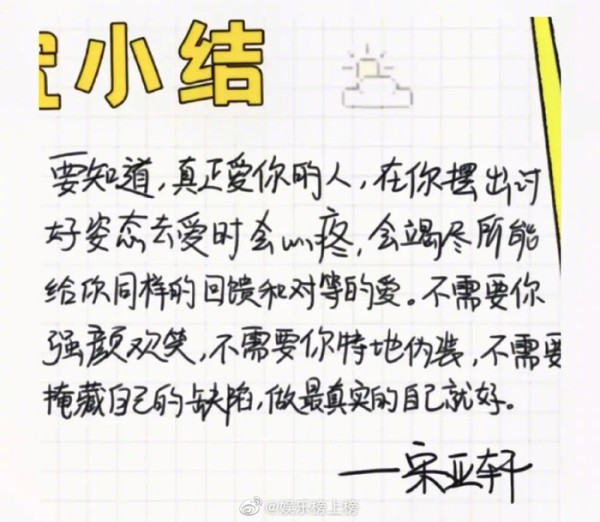 小结
要知道，真正爱你的人，在你摆出讨
好姿态去爱时会心疼，会竭尽所能
给你同样的回馈和对等的爱。不需要你
强颜欢笑，不需要你特地伪装，不需要
掩藏自己的缺陷，做最真实的自己就好。
——宋亚轩
@娱乐榜上榜